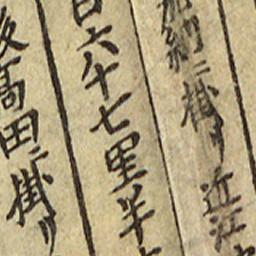 加納ニ掛リ近江
百六十七里半
後高田ニ掛リ